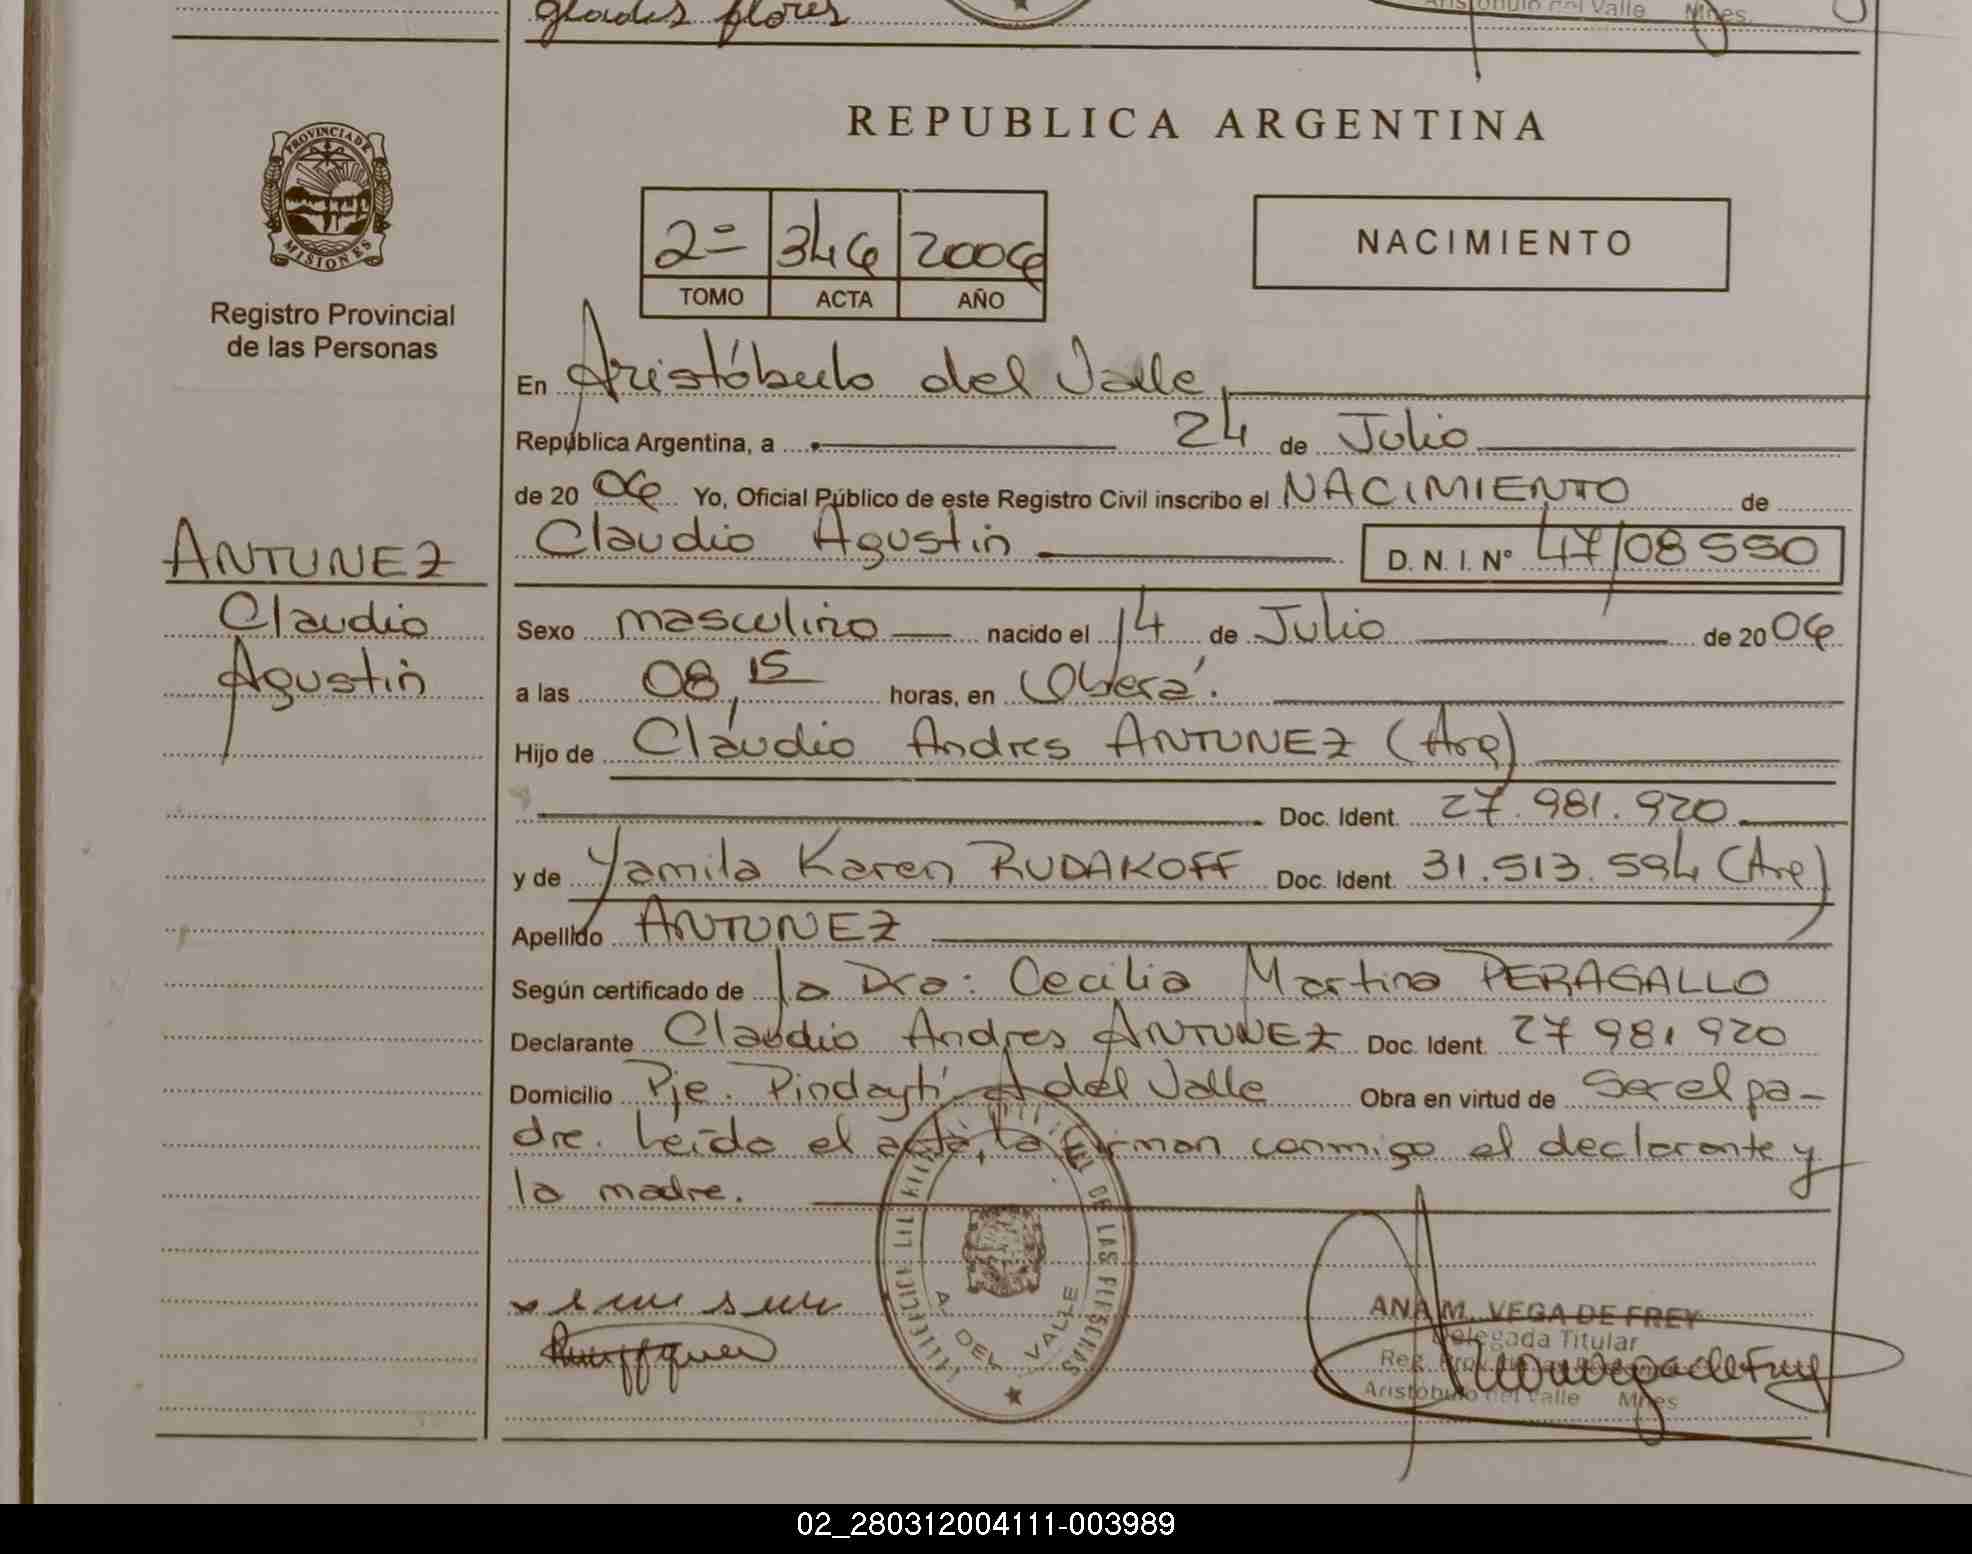 glades flores
Aristobulo del Valle Mnes.
PROVINCIA DE
MISIONES
Registro Provincial
de las Personas
REPUBLICA ARGENTINA
2= 346 2006
TOMO ACTA AÑO
NACIMIENTO
En Aristóbulo del Valle,
República Argentina, a 24 de Julio
de 20 06 Yo, Oficial Público de este Registro Civil inscribo el NACIMIENTO de
ANTUNEZ
Claudio
Agustin
Claudio Agustin D. N. I. Nº 47108550
Sexo masculino nacido el 14 de Julio de 20 06
a las 08,15 horas, en Oberá.
Hijo de Claudio Andres ANTUNEZ (Arg)
Doc. Ident. 27.981.920
y de Yamila Karen RUDAKOFF Doc. Ident. 31.513.594 (Arg)
Apellido ANTUNEZ
Según certificado de la Dra: Cecilia Martina PERAGALLO
Declarante Claudio Andres ANTUNEZ Doc. Ident. 27 981 920
Domicilio Pje. Pindaytí A del Valle Obra en virtud de ser el pa-
dre. Leído el acta, la firman conmigo el declarante y
la madre.
DE LAS PERSONAS
A. DEL VALLE
ANA M. VEGA DE FREY
Delegada Titular
Reg. Prov.
Aristobulo del Valle Mnes
02_280312004111-003989